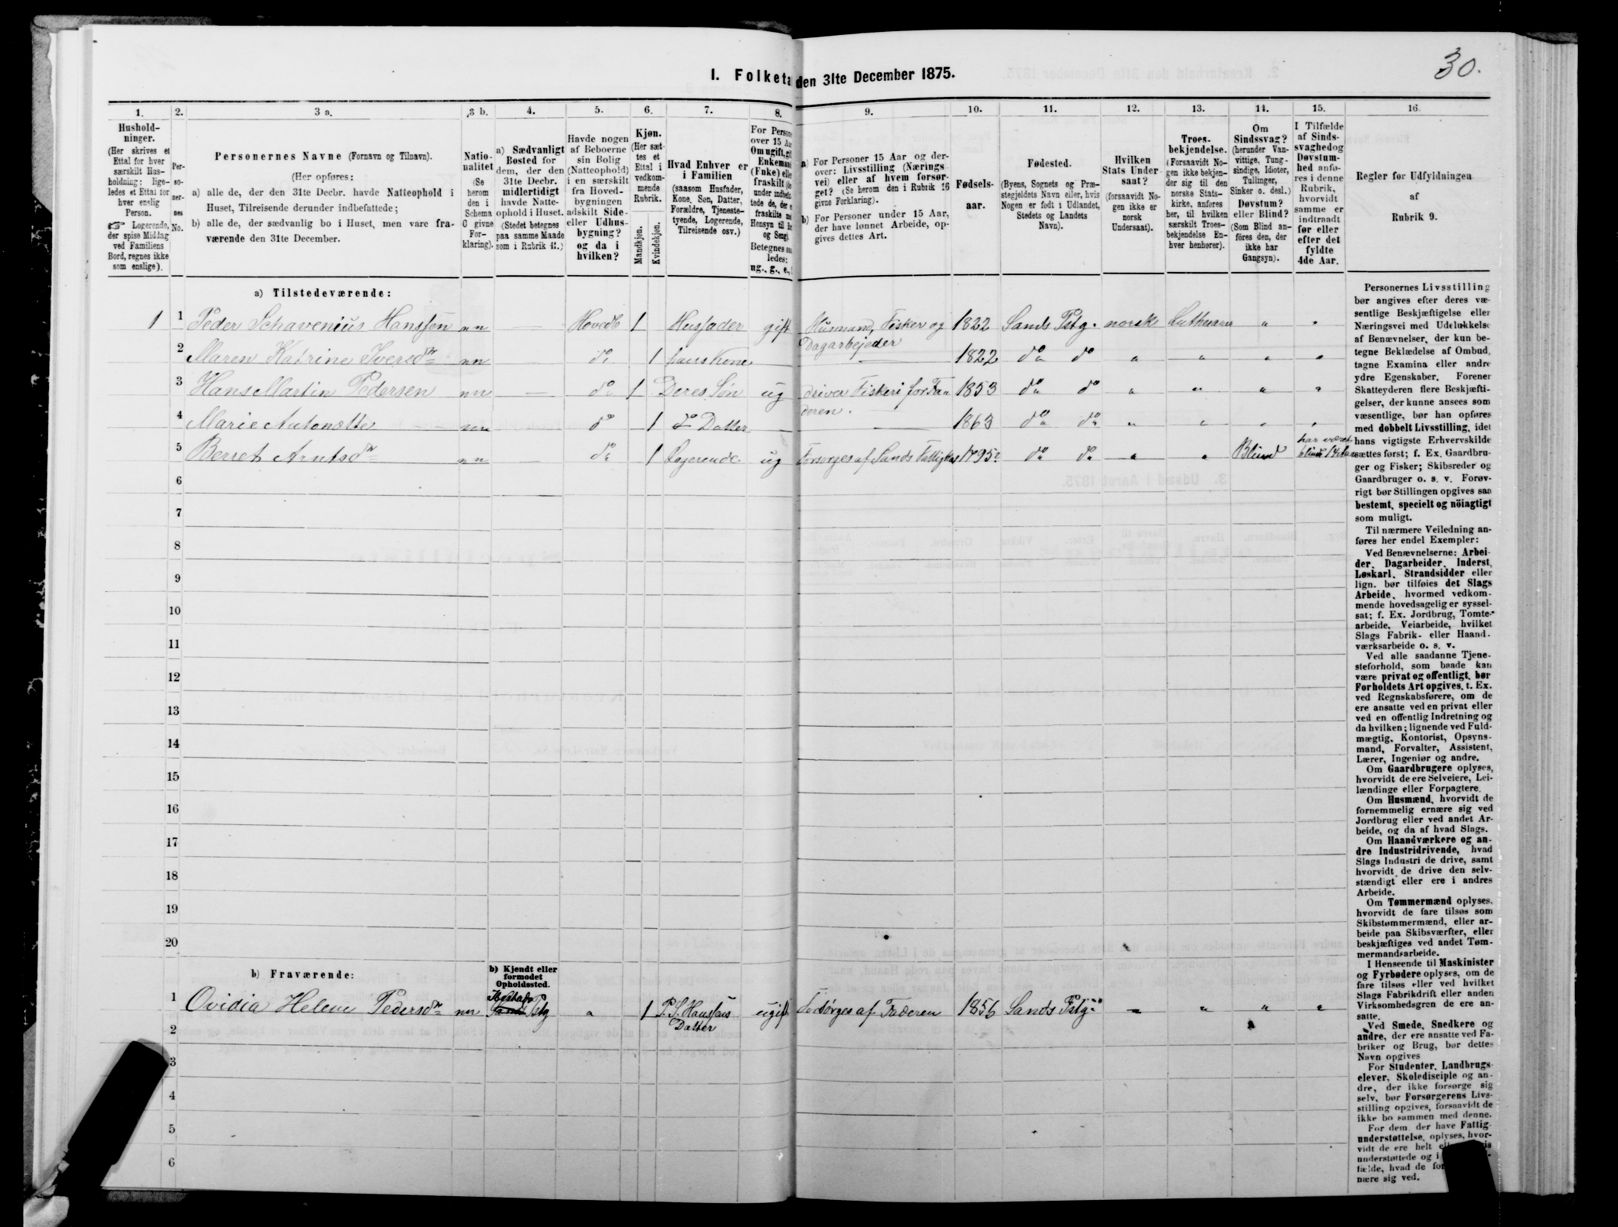 30.
I. Folketæ den 31te December 1875.
1.
2.
3 a.
3 b.
4.
5.
6.
7.
8.
9.
10.
11.
12.
13.
14.
15.
16.
Hushold-
ninger.
(Her skrives et
Ettal for hver
særskilt Hus-
holdning; lige-
ledes et Ettal for
hver enslig
Person.
☞ Logerende,
der spise Middag
ved Familiens
Bord, regnes ikke
som enslige).
Per-
so-
ner-
nes
No.
Personernes Navne (Fornavn og Tilnavn).
(Her opføres:
a) alle de, der den 31te Decbr. havde Natteophold i
Huset, Tilreisende derunder indbefattede;
b) alle de, der sædvanlig bo i Huset, men vare fra-
værende den 31te December.
Natio-
nalitet
(Se
herom
den i
Schema
6 givne
For-
klaring).
a) Sædvanligt
Bosted for
dem, der den
31te Decbr.
midlertidigt
havde Natte-
ophold i Huset.
(Stedet betegnes
paa samme Maade
som i Rubrik 11.)
Havde nogen
af Beboerne
sin Bolig
(Natteophold)
i en særskilt
fra Hoved-
bygningen
adskilt Side-
eller Udhus-
bygning?
og da i
hvilken?
Kjøn.
(Her sæt-
tes et
Ettal i
vedkom-
mende
Rubrik.
Mandkjøn.
Kvindekjøn.
Hvad Enhver er
i Familien
(saasom Husfader,
Kone, Søn, Datter,
Forældre, Tjeneste-
tyende, Logerende,
Tilreisende osv.)
a) For Personer 15 Aar og der-
over: Livsstilling (Nærings-
vei) eller af hvem forsør-
get? (Se herom den i Rubrik 16
givne Forklaring).
b) For Personer under 15 Aar,
der have lønnet Arbeide, op-
gives dettes Art.
Fødsels-
aar.
Fødested.
(Byens, Sognets og Præ-
stegjeldets Navn eller, hvis
Nogen er født i Udlandet,
Stedets og Landets
Navn).
Hvilken
Stats Under
saat?
(forsaavidt No-
gen ikke er
norsk
Undersaat).
Troes-
bekjendelse.
(Forsaavidt No-
gen ikke bekjen-
der sig til den
norske Stats-
kirke, anføres
her, til hvilken
særskilt Troes-
bekjendelse En-
hver henhører).
Om
Sindssvag?
(herunder Van-
vittige, Tung-
sindige, Idioter,
Tullinger,
Sinker o. desl.)
Døvstum?
eller Blind?
(Som Blind an-
føres den, der
ikke har
Gangsyn).
I Tilfælde
af Sinds-
svaghedog
Døvstum-
hed anfø-
res i denne
Rubrik,
hvorvidt
samme er
indtraadt
før eller
efter det
fyldte
4de Aar.
Regler for Udfyldningen
af
Rubrik 9.
a) Tilstedeværende:
1 1 Peder Schavenius Hanssen nn Hovedb 1 Husfader gift Husmand, Fisker og Dagarbejder 1822 Sands Pstg. norsk Lutheraner " "
2 Maren Katrine Iversdr nn do 1 hans Kone 1822 do do " " " "
3 Hans Martin Pedersen nn do 1 Deres Søn ug driver Fiskeri for Faderen. 1853 do do " " " "
4 Marie Antonette nn do 1 do Datter 1863 do do " " " "
5 Berret Arntsdr nn do 1 Logerende ug Forsørges af Sands Fattigkas 1795 do do " " Blind har været blind
6
7
8
9
10
11
12
13
14
15
16
17
18
19
20
b) Fraværende:
b) Kjendt eller
formodet
Opholdssted.
1 Ovidia Helene Pedersdr nn Pstg " 1 P. S. Hanssens Datter ugift Forsørges af Faderen 1856 Sands Pstg. " " " "
2
3
4
5
6
Personernes Livsstilling
bør angives efter deres væ-
sentlige Beskjæftigelse eller
Næringsvei med Udelukkelse
af Benævnelser, der kun be-
tegne Beklædelse af Ombud,
tagne Examina eller andre
ydre Egenskaber. Forener
Skatteyderen flere Beskjæfti-
gelser, der kunne ansees som
væsentlige, bør han opføres
med dobbelt Livsstilling, idet
hans vigtigste Erhvervskilde
sættes først; f. Ex. Gaardbru-
ger og Fisker; Skibsreder og
Gaardbruger o. s. v. Forøv-
rigt bør Stillingen opgives saa
bestemt, specielt og nöiagtigt
som muligt.
Til nærmere Veiledning an-
føres her endel Exempler:
Ved Benævnelserne: Arbei-
der, Dagarbeider, Inderst,
Løskarl, Strandsidder eller
lign. bør tilføies det Slags
Arbeide, hvormed vedkom-
mende hovedsagelig er syssel-
sat; f. Ex. Jordbrug, Tomte-
arbeide, Veiarbeide, hvilket
Slags Fabrik- eller Haand-
værksarbeide o. s. v.
Ved alle saadanne Tjene-
steforhold, som baade kan
være privat og offentligt, bør
Forholdets Art opgives, t. Ex.
ved Regnskabsførere, om de
ere ansatte ved en privat eller
ved en offentlig Indretning og
da hvilken; lignende ved Fuld-
mægtig, Kontorist, Opsyns-
mand, Forvalter, Assistent,
Lærer, Ingeniør og andre.
Om Gaardbrugere oplyses,
hvorvidt de ere Selveiere, Lei-
lændinge eller Forpagtere.
Om Husmænd, hvorvidt de
fornemmelig ernære sig ved
Jordbrug eller ved andet Ar-
beide, og da af hvad Slags.
Om Haandværkere og an-
dre Industridrivende, hvad
Slags Industri de drive, samt
hvorvidt de drive den selv-
stændigt eller ere i andres
Arbeide.
Om Tømmermænd oplyses,
hvorvidt de fare tilsøs som
Skibstømmermænd, eller ar-
beide paa Skibsværfter, eller
beskjæftiges ved andet Tøm-
mermandsarbeide.
I Henseende til Maskinister
og Fyrbødere oplyses, om de
fare tilsøs eller ved hvilket
Slags Fabrikdrift eller anden
Virksomhedsgren de ere an-
satte.
Ved Smede, Snedkere og
andre, der ere ansatte ved Fa-
briker og Brug, bør dettes
Navn opgives
For Studenter, Landbrugs-
elever, Skoledisciple og an-
dre, der ikke forsørge sig
selv, bør Forsørgerens Livs-
stilling opgives, forsaavidt de
ikke bo sammen med denne.
For dem, der have Fattig-
understøttelse, oplyses, hvor-
vidt de ere helt
understøttede og i
fælde, hvad de
nære sig ved.